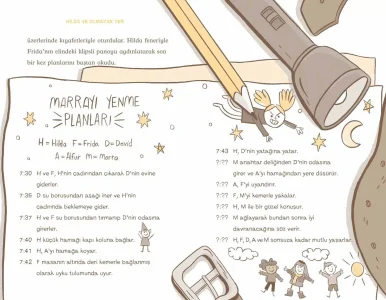 HİLDA VE OLMAYAN YER
üzerlerinde kıyafetleriyle oturdular. Hilda feneriyle
Frida'nın elindeki klipsli panoyu aydınlatarak son
bir kez planlarını baştan okudu.
MARRAYI YENME
PLANLARI
H=Hilda F=Frida D=David
A=Alfur M=Marra
7:30 H ve F, H'nin çadırından çıkarak D'nin evine
giderler.
7:35 D su borusundan aşağı iner ve H'nin
çadırında beklemeye gider.
7:37 H ve F su borusundan tırmanıp D'nin odasına
girerler.
7:40 H küçük hamağı kapı koluna bağlar.
7:41 H, A'yı hamağa koyar.
7:42 F masanın altında deri kemerle bağlanmış
olarak uyku tulumunda uyur.
7:43 H, D'nin yatağına yatar.
7:?? M anahtar deliğinden D'nin odasına
girer ve A'yı hamağından yere düşürür.
7:?? A, F'yi uyandırır.
7:?? F, M'yi kemerle yakalar.
7:?? H, M ile bir güzel konuşur.
7:?? M ağlayarak bundan sonra iyi
davranacağına söz verir.
7:?? H, F, D, A ve M sonsuza kadar mutlu yaşarlar.